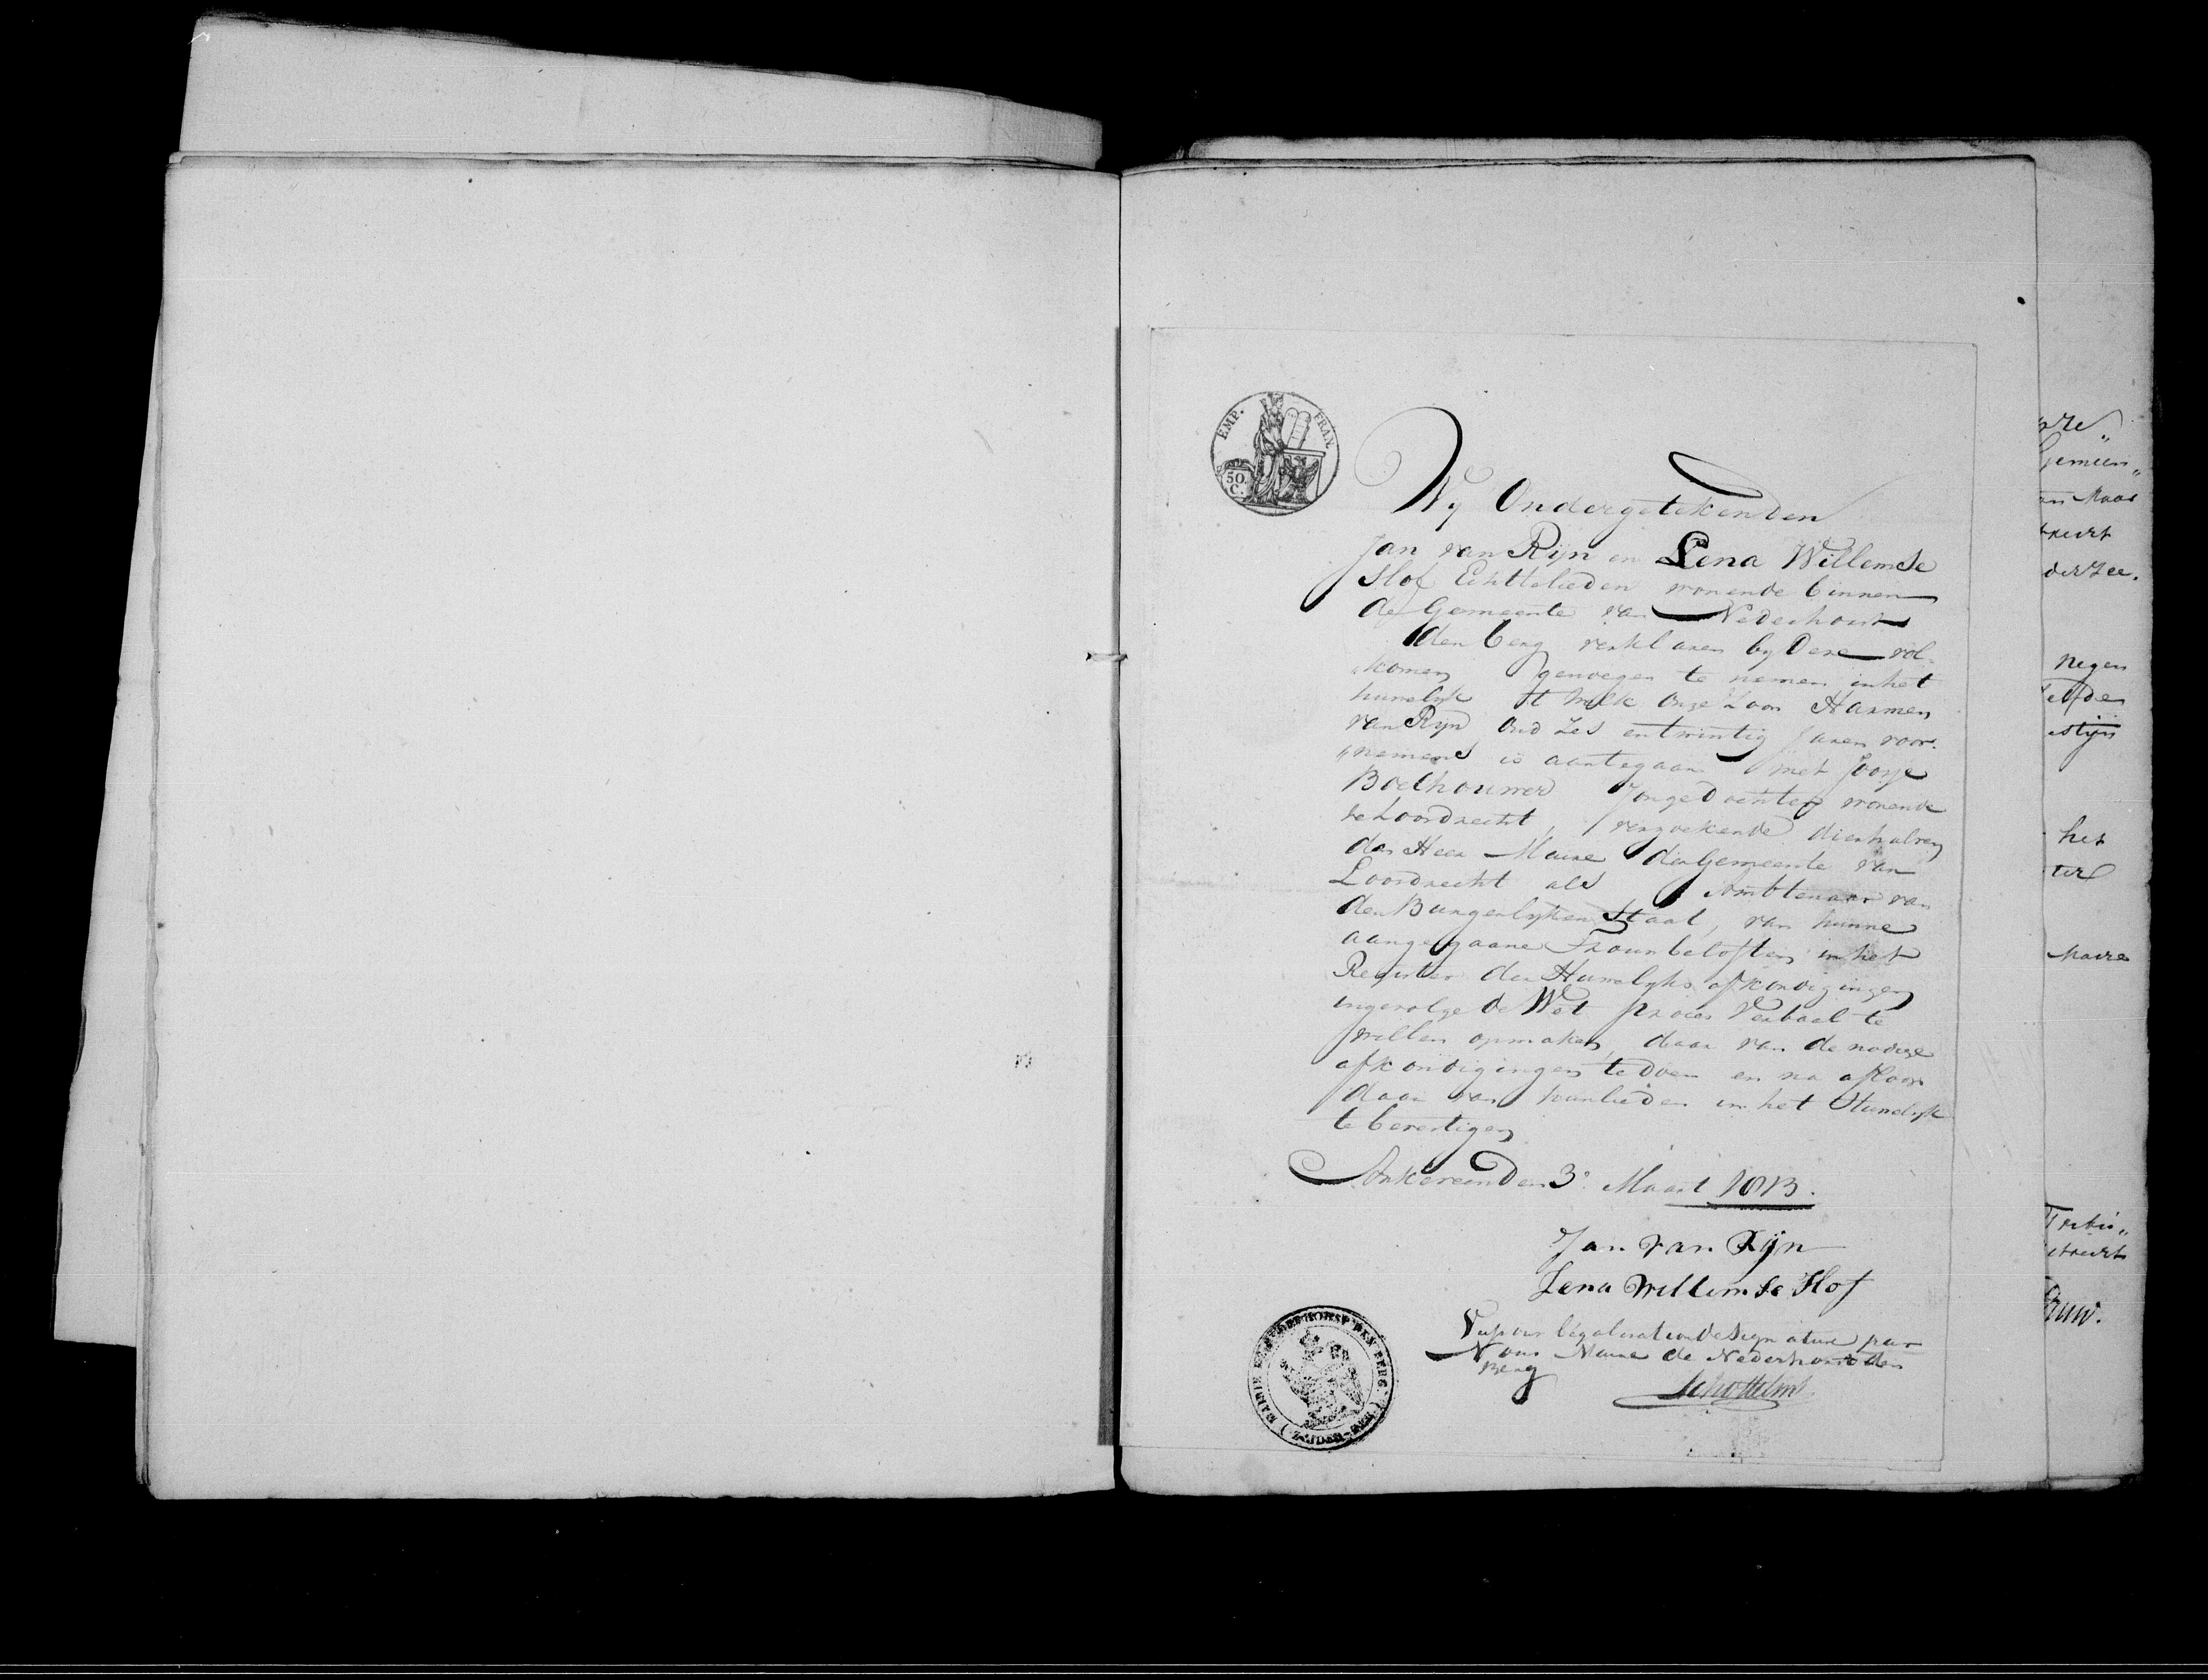 EMP. FRAN.
50
C.
Wy Ondergetekenden
Jan van Rijn en Lena Willemse
Slof Echtelieden wonende binnen
de Gemeente van Nederhorst
den berg verklaren by Deze vol-
„komen genoegen te nemen in het
huwelyk 't welk onze Zoon Harmen
van Ryn Oud Zes entwintig Jaren voor-
„nemens is aantegaan met Joosje
Boelhouwer Jongedochter wonende
te Loosdrecht, verzoekende dierhalven
den Heer Maire der Gemeente van
Loosdrecht als Ambtenaar van
den Burgerlyken Staat, van hunne
aangegaane Trouwbeloften in het
Register der Huwelyks afkondigingen
ingevolge de Wet Proces Verbaal te
willen opmaken, daar van de nodige
afkondigingen te doen en na afloop
daar van hunlieden in het Huwelyk
te bevestigen
Ankeveen den 3e Maart 1813.
Jan van Rijn
Lena Willemse Slof
Vu pour légalisation de Signature par
Nous Maire de Nederhorst den
Berg
MAIRIE NEDERHORST DEN BERG
ZUIDER-ZEE
oze„
Gemeen„
trecht
derzee.
negen
elfde
het
ter
Maire
Tribu„
trecht